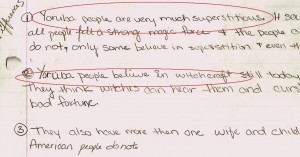 ① Yoruba people are very much superstitious. It
all people felt a strong magic force & the people
do not, only some believe in superstition &
② Yoruba people believe in witchcraft still today
They think witches can hear them and
bad fortune.
③ They also have more then one wife and child
American people do not